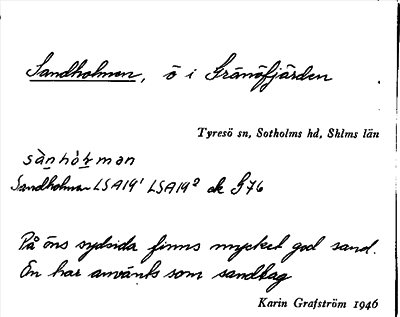 Sandholmen, ö i Gränöfjärden
Tyresö sn, Sotholms hd, Shlms län
sànhòļmən
Sandholmen LSA19¹ LSA19² ek G76
På öns sydsida finns mycket god sand.
Ön har använts som sandtag
Karin Grafström 1946